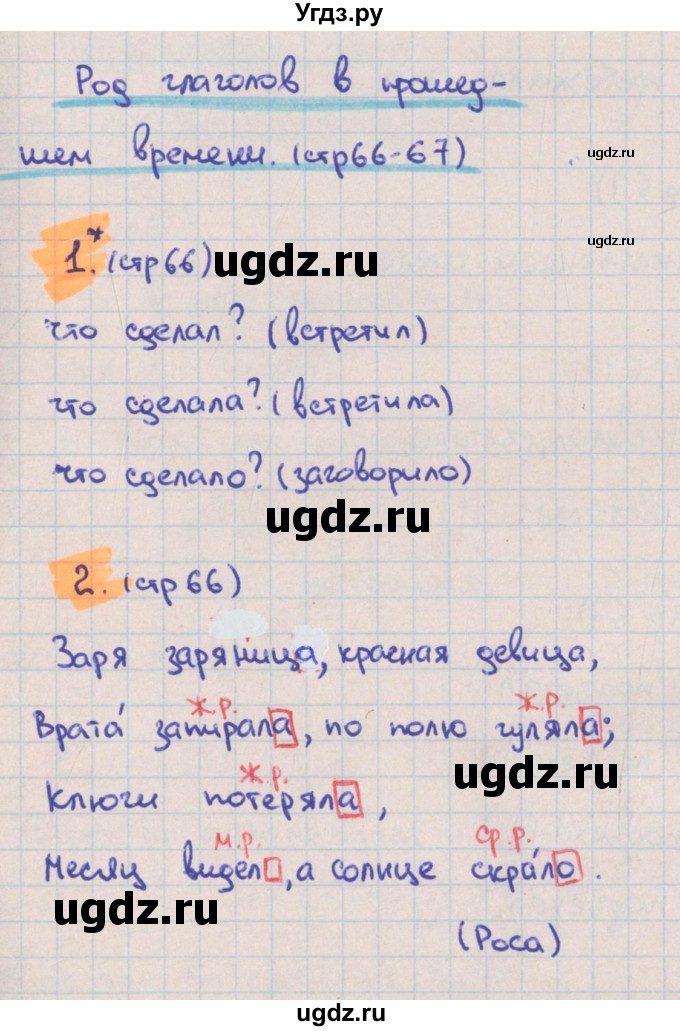 Угдз.ру
Род глаголов в прошед-
шем времени. (стр 66-67)
ugdz.ru
ugdz.ru
1.* (стр 66) ugdz.ru
что сделал? (встретил)
что сделала? (встретила)
что сделало? (заговорило)
ugdz.ru
2. (стр 66)
Заря заряница, красная девица,
ж.р. ж.р.
Врата́ запирала, по полю гуляла;
ugdz.ru
ж.р.
Ключи потеряла,
м.р. ср.р.
Месяц видел, а солнце скра́ло.
ugdz.ru
(Роса)
ugdz.ru